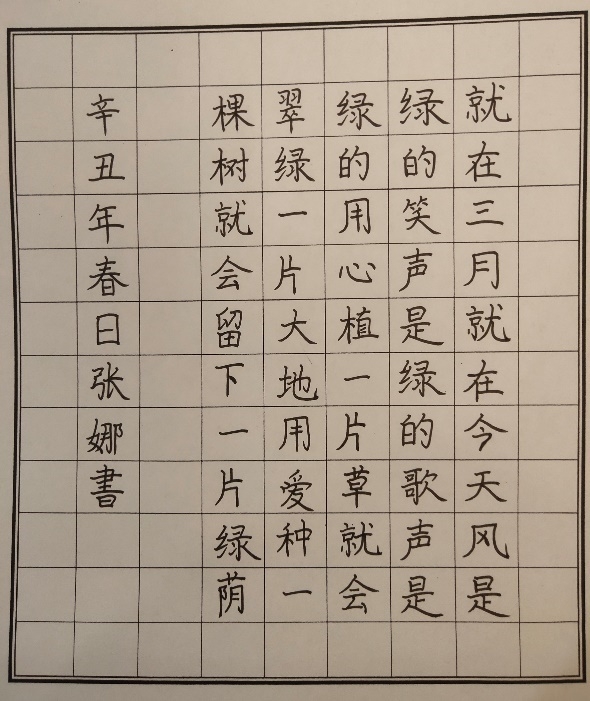 就在三月就在今天风是
绿的笑声是绿的歌声是
绿的用心植一片草就会
翠绿一片大地用爱种一
棵树就会留下一片绿荫
辛丑年春日张娜書